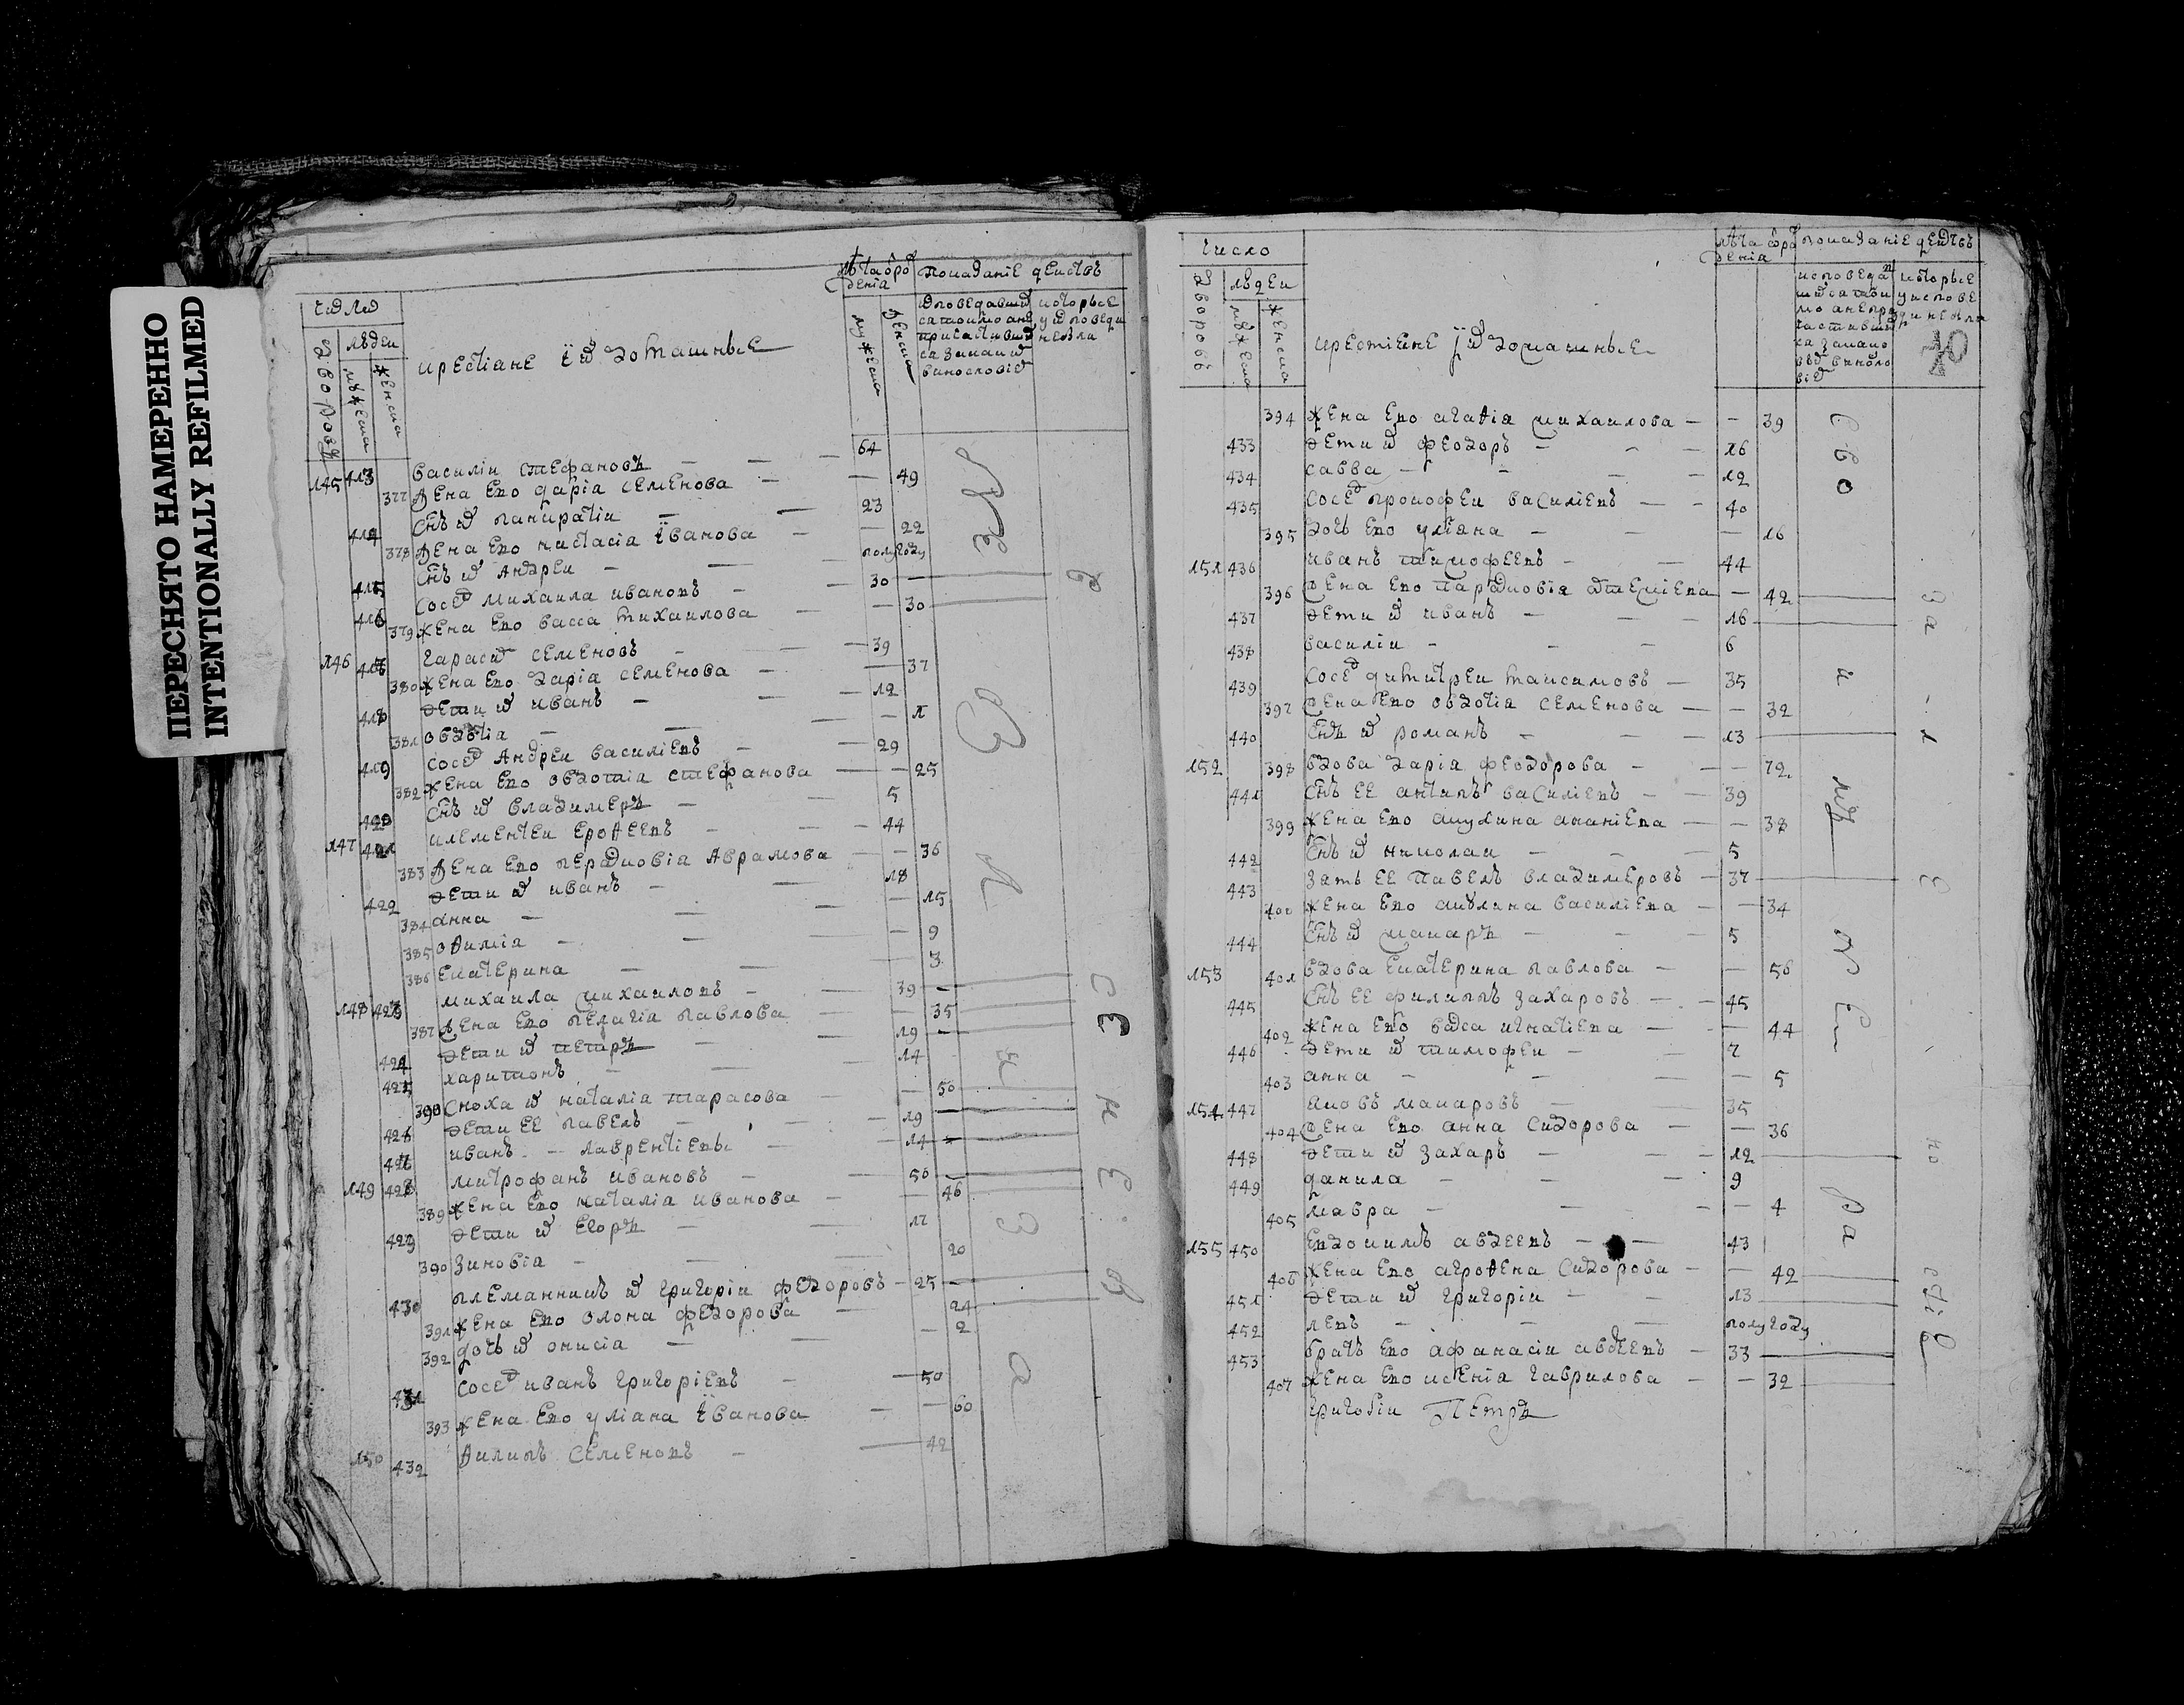 ПЕРЕСНЯТО НАМЕРЕННО
INTENTIONALLY REFILMED
число
людеи
дворовъ
мужеска
женска
крестiане i их домашные
лѣта от рождениа
мужеска
женска
показанiе действъ
145 413 василiи стефановъ — 64
377 жена ево дарiа семенова — 49
414 снъ их панкратiи — 23
378 жена ево настасiа iванова — 22
415 снъ их андреи — полугоду
416 сосед михаила ивановъ — 30
379 жена ево васса михаилова — 30
146 417 тарас семеновъ — 39
380 жена ево дарiа семенова — 37
418 дети их иванъ — 12
381 овдотiа — 1
419 сосед андреи василiевъ — 29
382 жена ево овдотiа стефанова — 25
420 снъ их владимеръ — 5
147 421 клементеи ероѳеевъ — 44
383 жена ево персковiа аврамова — 36
422 дети их иванъ — 18
384 анна — 15
385 оѳимiа — 9
386 екатерина — 3
148 423 михаила михаиловъ — 39
387 жена ево пелагiа павлова — 35
424 дети их петръ — 19
425 харитонъ — 14
388 сноха их наталiа тарасова — 50
426 дети ее павелъ — 19
427 иванъ — лаврентiевы — 14
149 428 митрофанъ ивановъ — 50
389 жена ево наталiа иванова — 46
429 дети их егоръ — 17
390 зиновiа — 20
430 племанникъ их григорiи федоровъ — 25
391 жена ево олона федорова — 24
392 дочь их онисiа — 2
431 сосед иванъ григорiевъ — 50
393 жена ево улiана iванова — 60
150 432 ѳилипъ семеновъ — 42
число
дворовъ
людеи
мужеска
женска
крестiане i их домашные
лѣта от рождениа
показанiе действъ
70
394 жена ево агаѳiа михаилова — 39
433 дети их феодоръ — 16
434 савва — 12
435 сосед прокофеи василiевъ — 40
395 дочь ево улiана — 16
151 436 иванъ тимофеевъ — 44
396 жена ево парасковiа артемiева — 42
437 дети их иванъ — 16
438 василiи — 6
439 сосед димитреи максимовъ — 35
397 жена ево овдотiа семенова — 32
440 снъ их романъ — 13
152 398 вдова дарiа феодорова — 72
441 снъ ее антипъ василiевъ — 39
399 жена ево акулина ананiева — 38
442 снъ их николаи — 5
443 зать ее павелъ владимеровъ — 37
400 жена ево акулина василiева — 34
444 снъ их макаръ — 5
153 401 вдова екатерина павлова — 56
445 снъ ее филиппъ захаровъ — 45
402 жена ево васса игнатiева — 44
446 дети их тимофеи — 7
403 анна — 5
154 447 яковъ макаровъ — 35
404 жена ево анна сидорова — 36
448 дети их захаръ — 12
449 данила — 9
405 мавра — 4
155 450 евдокимъ авдеевъ — 43
406 жена ево агроѳена сидорова — 42
451 дети их григорiи — 13
452 левъ — полугоду
453 братъ ево афанасiи авдеевъ — 33
407 жена ево ксенiа гаврилова — 32
григореи Петръ